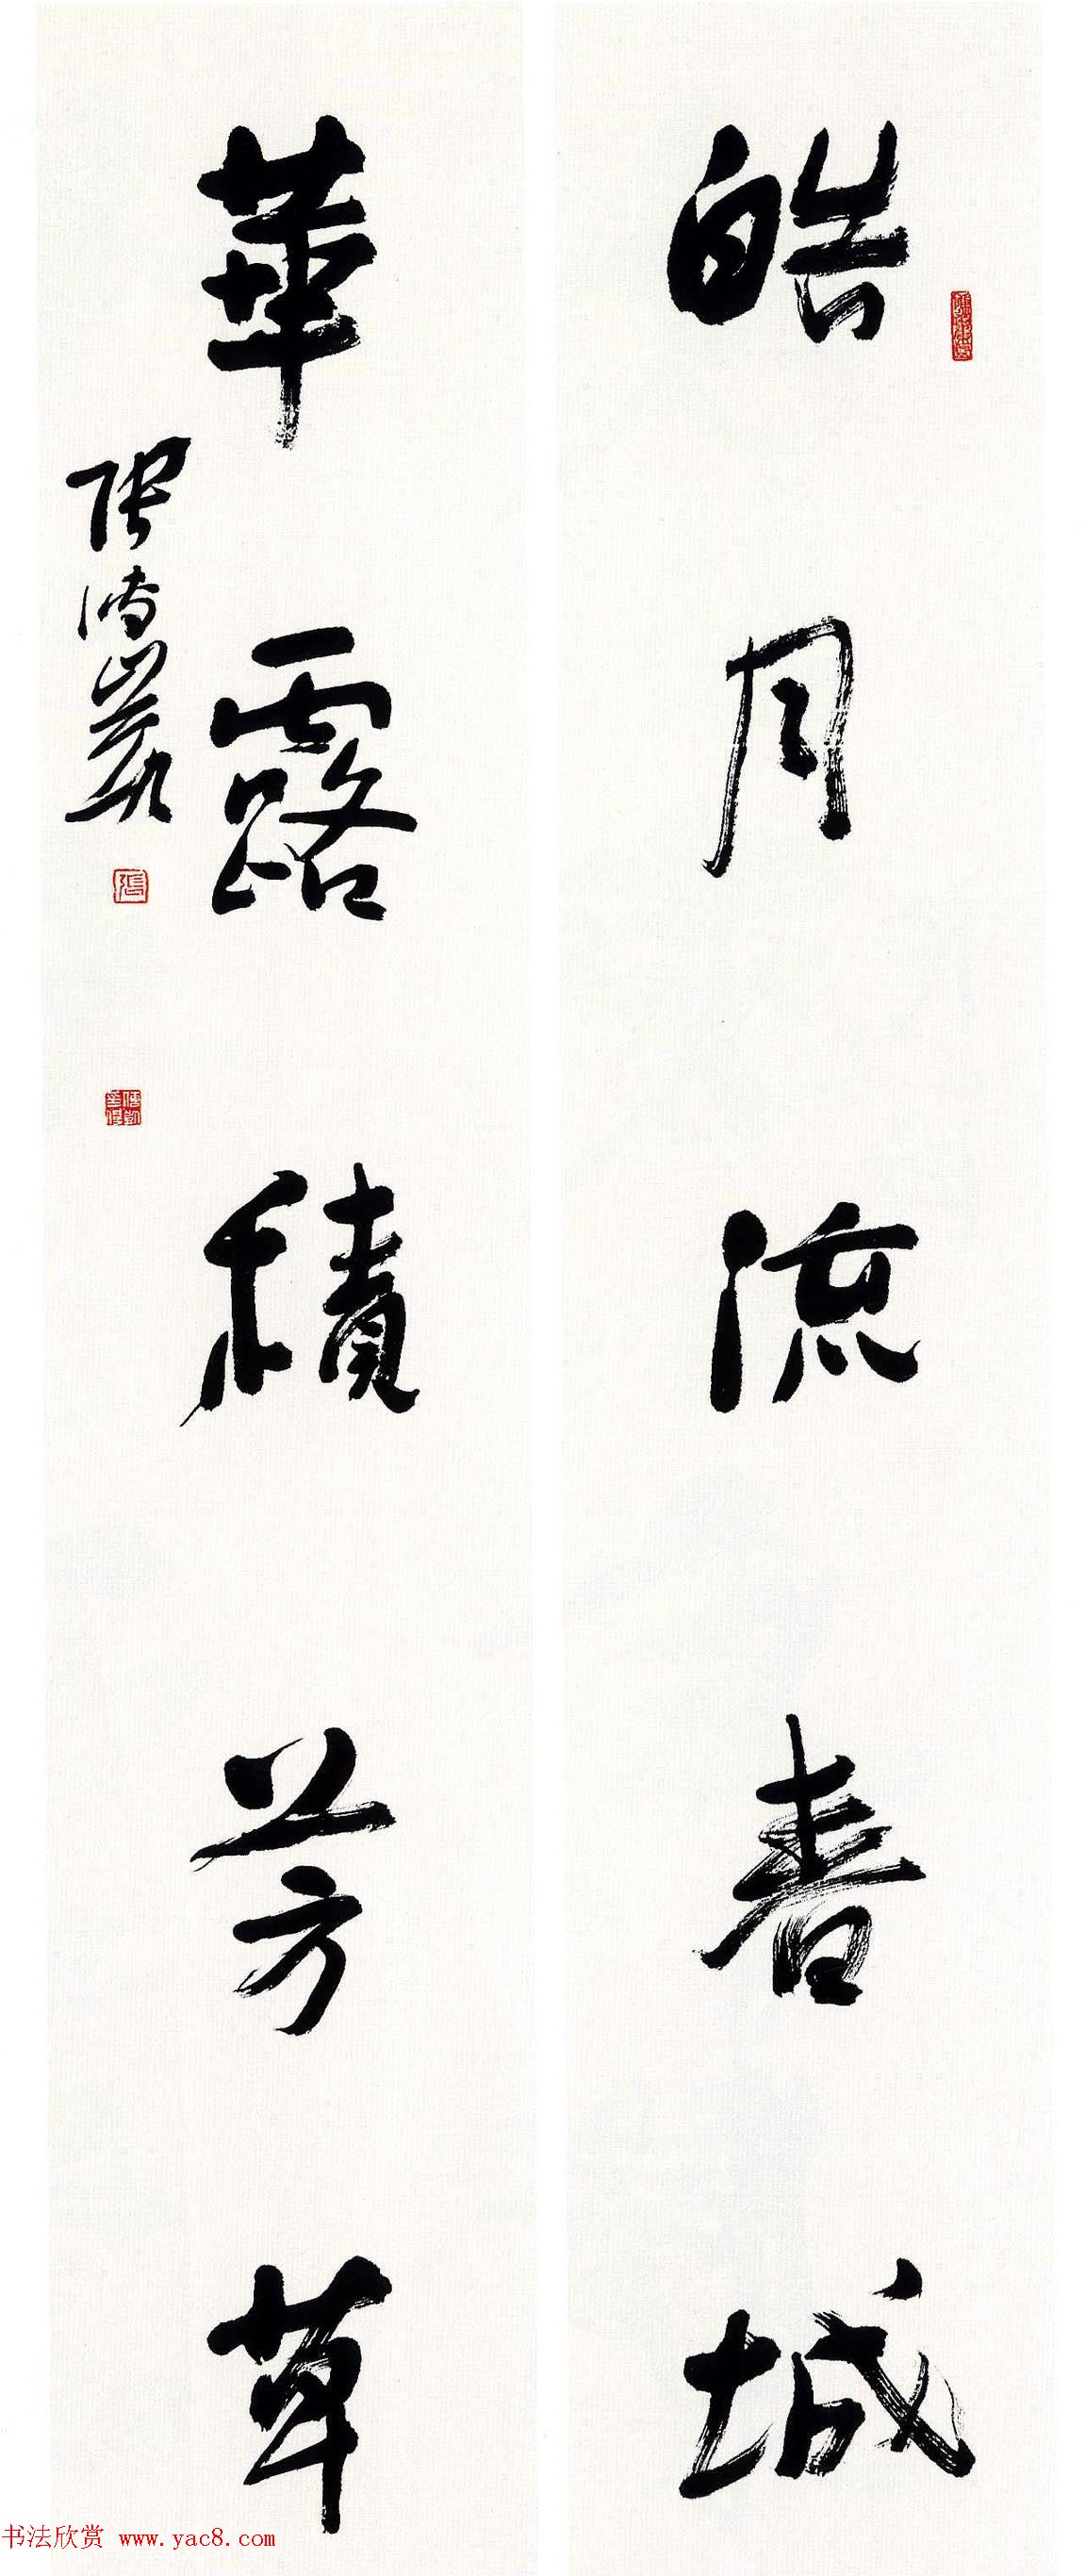 皓月流春城
華露積芳草
张海
书法欣赏 www.yac8.com